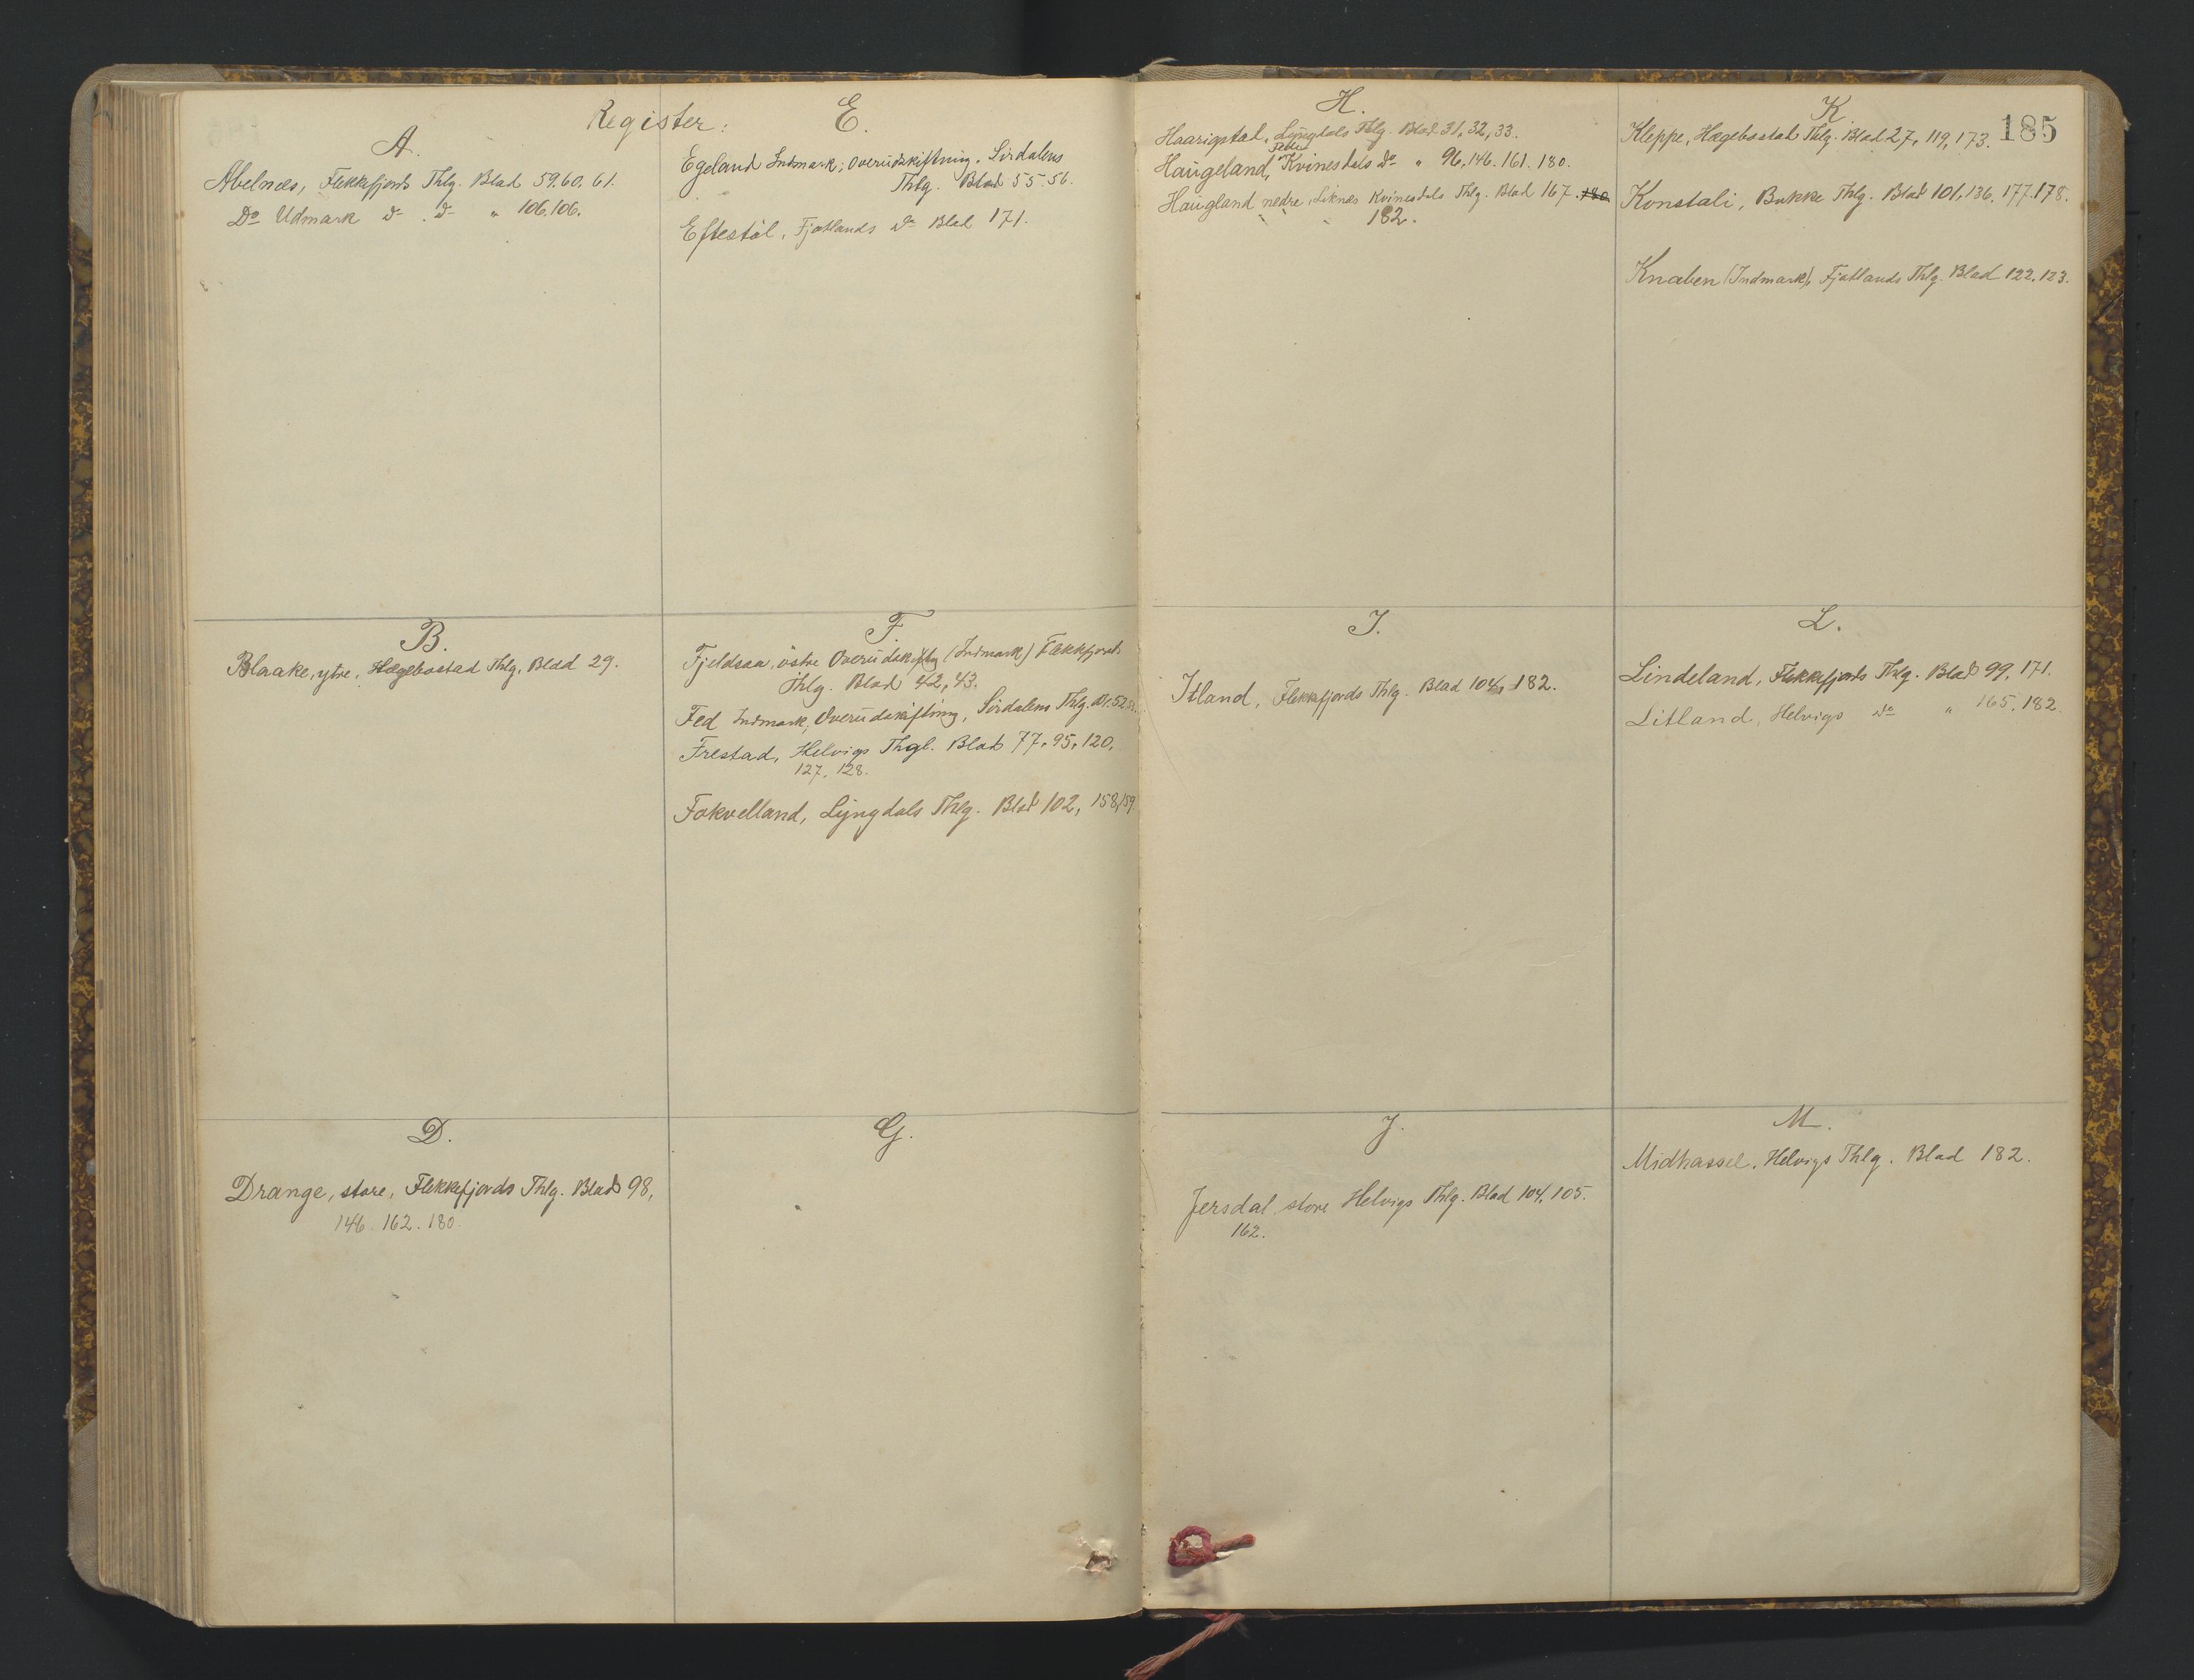 Register:
A.
Abelnæs, Flekkefjords Thlg. Blad 59.60.61.
Do Udmark do do " 106.106.
B.
Blaake, ytre, Hægebostad Thlg. Blad 29.
D.
Drange, store, Flekkefjords Thlg. Blad 98,
146. 162. 180.
E.
Egeland Indmark, Overudskiftning. Sirdalens
Thlg. Blad 55 56.
Eftestöl, Fjotlands do Blad 171.
F.
Fjeldsaa, östre Overudskiftng (Indmark) Flekkefjords
Thlg. Blad 42, 43.
Fed Indmark, Overudskiftning, Sirdalens Thlg. Bl. 52
Frestad, Helvigs Thgl. Blad 77. 95. 120.
127. 128.
Fokvelland, Lyngdals Thlg. Blad 102, 158, 159.
G.
H.
Lyngdals Thlg. Blad 31, 32, 33.
Haugeland, Kvinesdals do " 96. 146. 161. 180.
Haugland nedre, Liknes Kvinesdals Thlg. Blad 167. 180
182.
I.
Itland, Flekkefjords Thlg. Blad 104, 182.
J.
Jersdal store Helvigs Thlg. Blad 104, 105.
162.
K.
185
Kleppe, Hægebostad Thlg. Blad 27, 119, 173.
Konstali, Bakke Thlg. Blad 101, 136, 177. 178.
Knaben (Indmark), Fjotlands Thlg. Blad 122. 123.
L.
Lindeland, Flekkefjords Thlg. Blad 99, 171.
Litland, Helvigs do " 165, 182
M.
Midhassel, Helvigs Thlg. Blad 182.